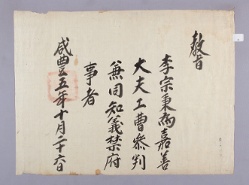 教旨
李宗秉爲嘉善
大夫工曹參判
兼同知義禁府
事者
咸豊五年十月二十六日